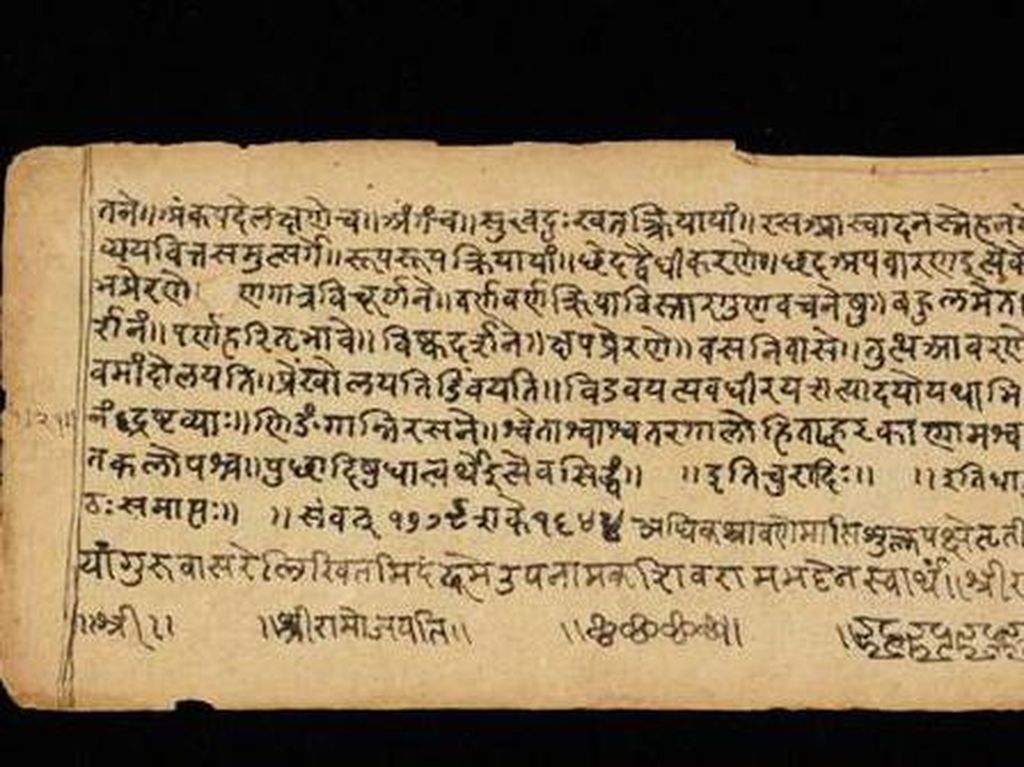 तने॥ अंकपदेलक्षणेच॥ अंगंच॥ सुखदुःखतत्क्रियायां॥ रसआस्वादनस्नेहनयोः
व्ययवित्तसमुत्सर्गे॥ रूपरूपक्रियायां॥ छेदद्वैधीकरणे॥ छदअपवारणइत्येके
नप्रेरणे। णगात्रविचूर्णने॥ वर्णवर्णक्रियाविस्तारगुणवचनेषु॥ बहुलमेत
र्शनं॥ पर्णहरितभावे॥ विष्कदर्शने॥ क्षपप्रेरणे॥ वसनिवासे॥ तुत्थआवरणे
वमांदोलयति॥ प्रेंखोलयतिडिंवयति॥ विडवयत्यवधीरयत्यादयोयथाभि
नंद्रष्टव्याः॥ णिङंगान्निरसने॥ श्वेताश्वाश्वतरगालोहिताह्वरकाणामश्व
तकलोपश्च॥ पुछादिषुधात्वर्थेइत्येवसिद्धं॥ ॥इतिचुरादिः॥ ॥इतिधा
ठःसमाप्तः॥ ॥संवत् १७७९ शके१६४४ अधिकश्रावणेमासिशुक्लपक्षेतृती
यांगुरुवासरेलिखितमिदं उपनामक शिवरामभट्टेनस्वार्थं॥ श्रीरा
॥श्री॥ ॥श्रीरामोजयति॥